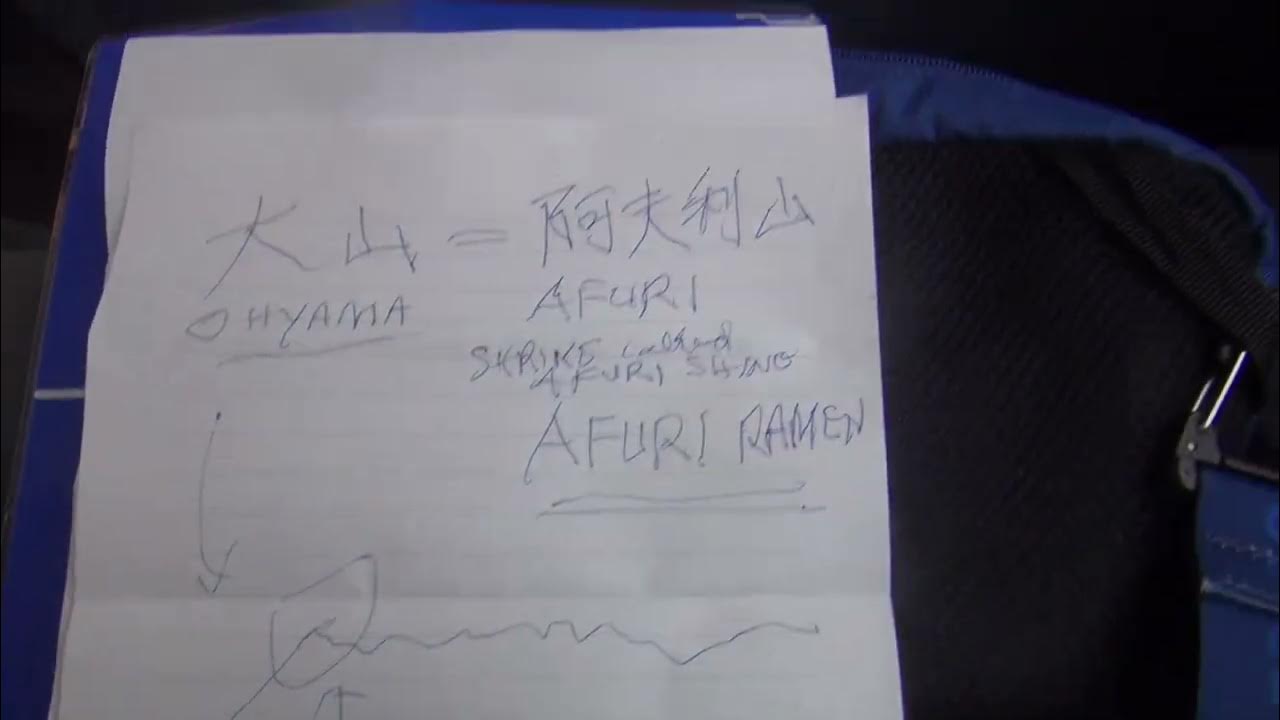 大山 = 阿夫利山
OHYAMA
AFURI
SHRINE called
AFURI SHING
AFURI RAMEN